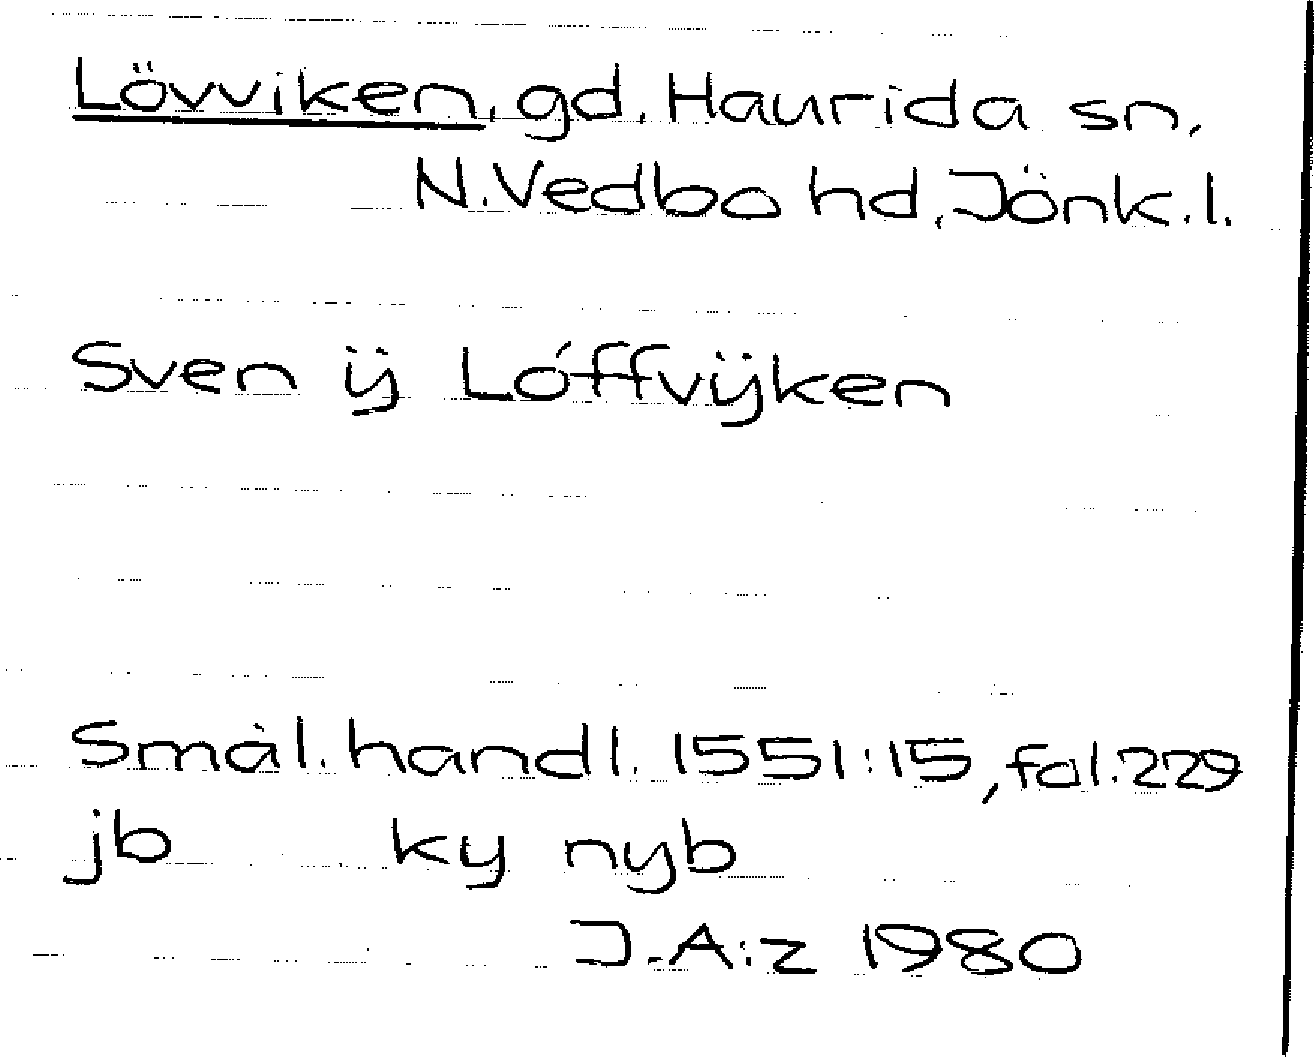 Lövviken, gd, Haurida sn,
N. Vedbo hd, Jönk. l.
Sven ÿ Lóffvÿken
Smål. handl. 1551:15, fol. 229
jb ky nyb
J.A:z 1980